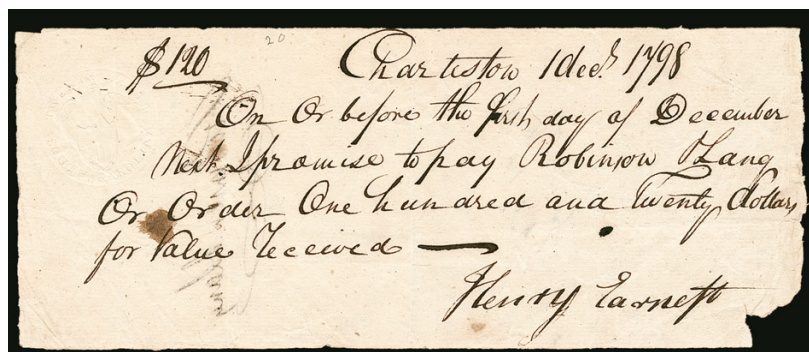 20
$120 Charleston 1 decr 1798
On Or before the first day of December
Next. I promise to pay Robinson & Lang
Or Order One hundred and Twenty dollars
for Value Received —
Henry Earnest